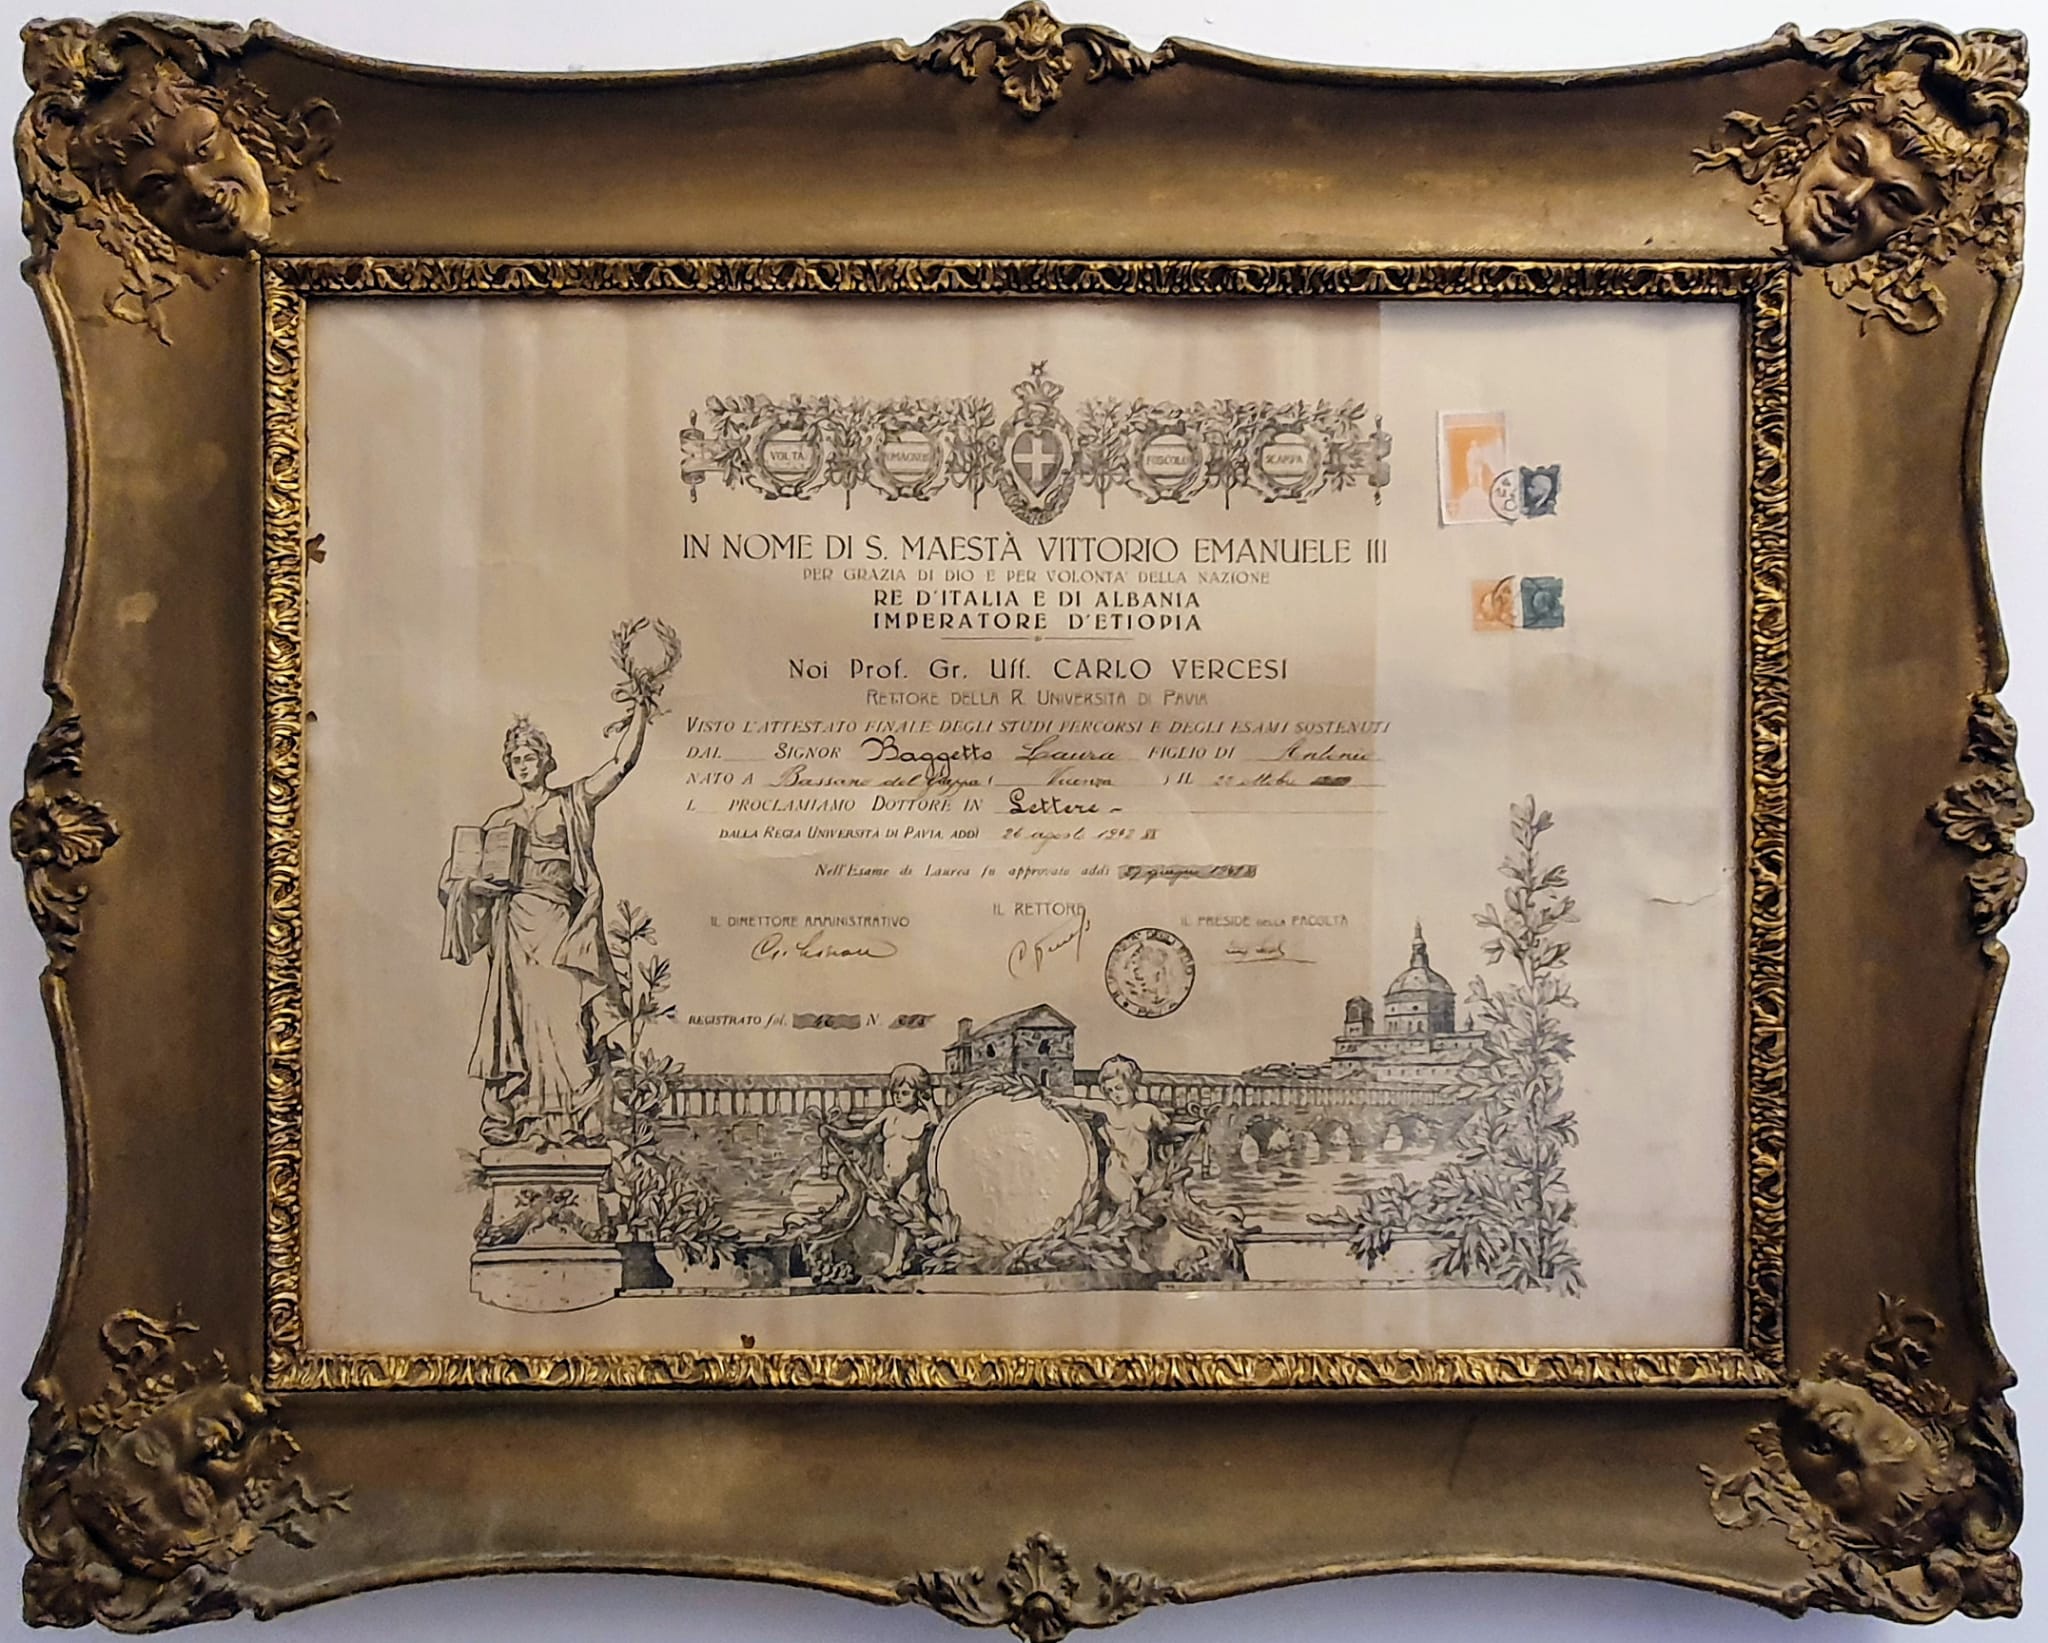 VOLTA ROMAGNOSI FOSCOLO SCARPA
IN NOME DI S. MAESTÀ VITTORIO EMANUELE III
PER GRAZIA DI DIO E PER VOLONTA' DELLA NAZIONE
RE D'ITALIA E DI ALBANIA
IMPERATORE D'ETIOPIA
Noi Prof. Gr. Uff. CARLO VERCESI
RETTORE DELLA R. UNIVERSITÀ DI PAVIA
VISTO L'ATTESTATO FINALE DEGLI STUDI PERCORSI E DEGLI ESAMI SOSTENUTI
DAL SIGNOR Baggetto Laura FIGLIO DI Antonio
NATO A Bassano del Grappa ( Vicenza ) IL 22 ottobre
L PROCLAMIAMO DOTTORE IN Lettere -
DALLA REGIA UNIVERSITÀ DI PAVIA, ADDÌ 26 agosto 1942 XX
Nell'Esame di Laurea fu approvato addì giugno 1942
IL DIRETTORE AMMINISTRATIVO
IL RETTORE
IL PRESIDE DELLA FACOLTÀ
REGISTRATO fol. 46 N.